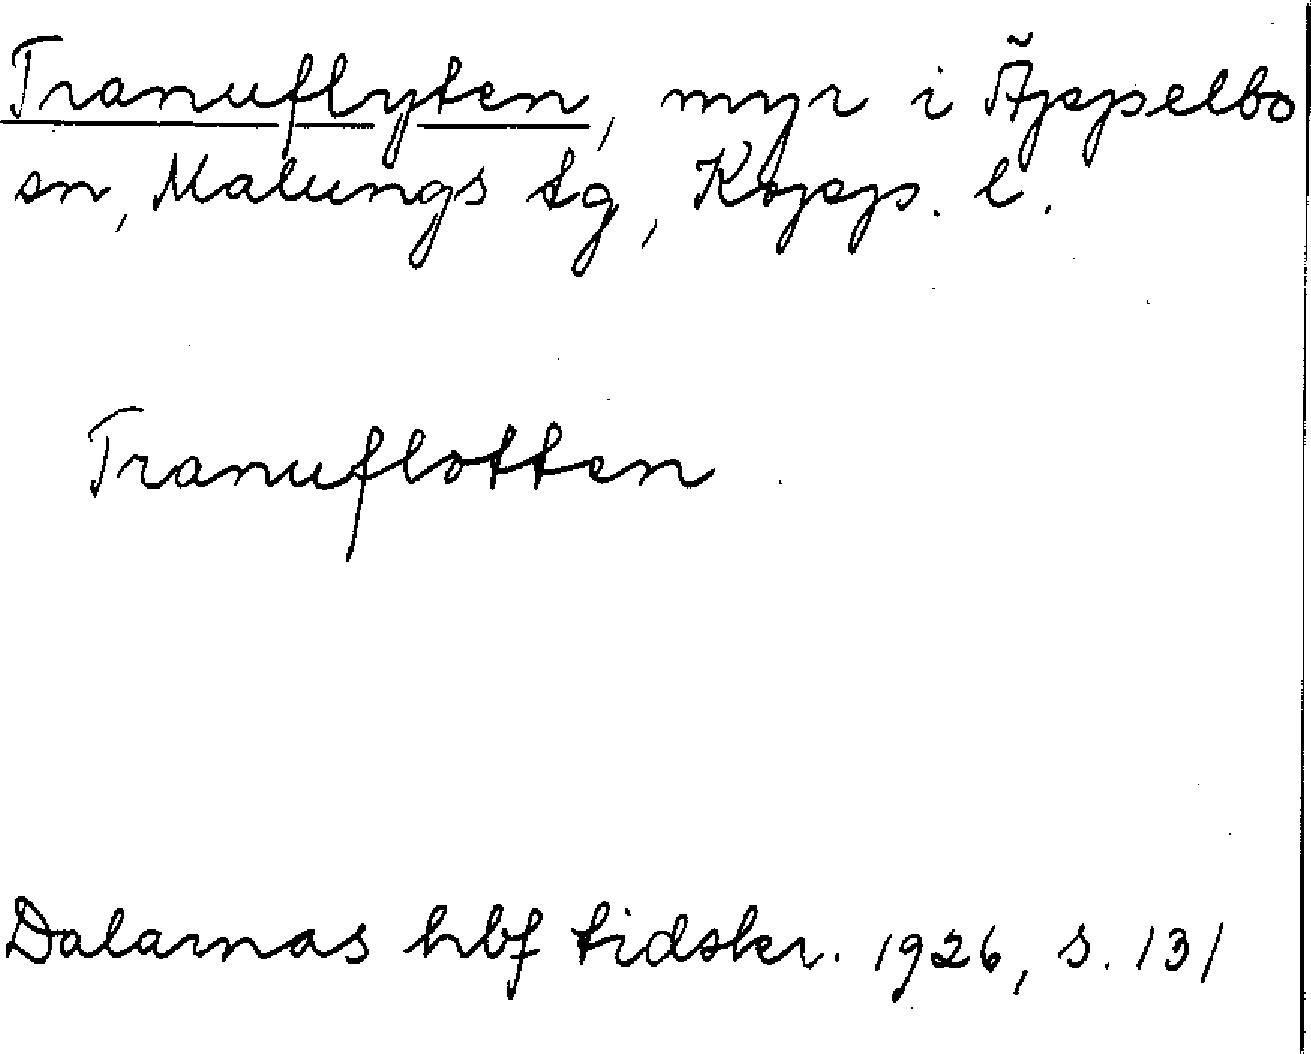 Tranuflyten, myr i Äppelbo
sn, Malungs tg, Kopp. l.
Tranuflotten
Dalarnas hbf tidskr. 1926, s. 131